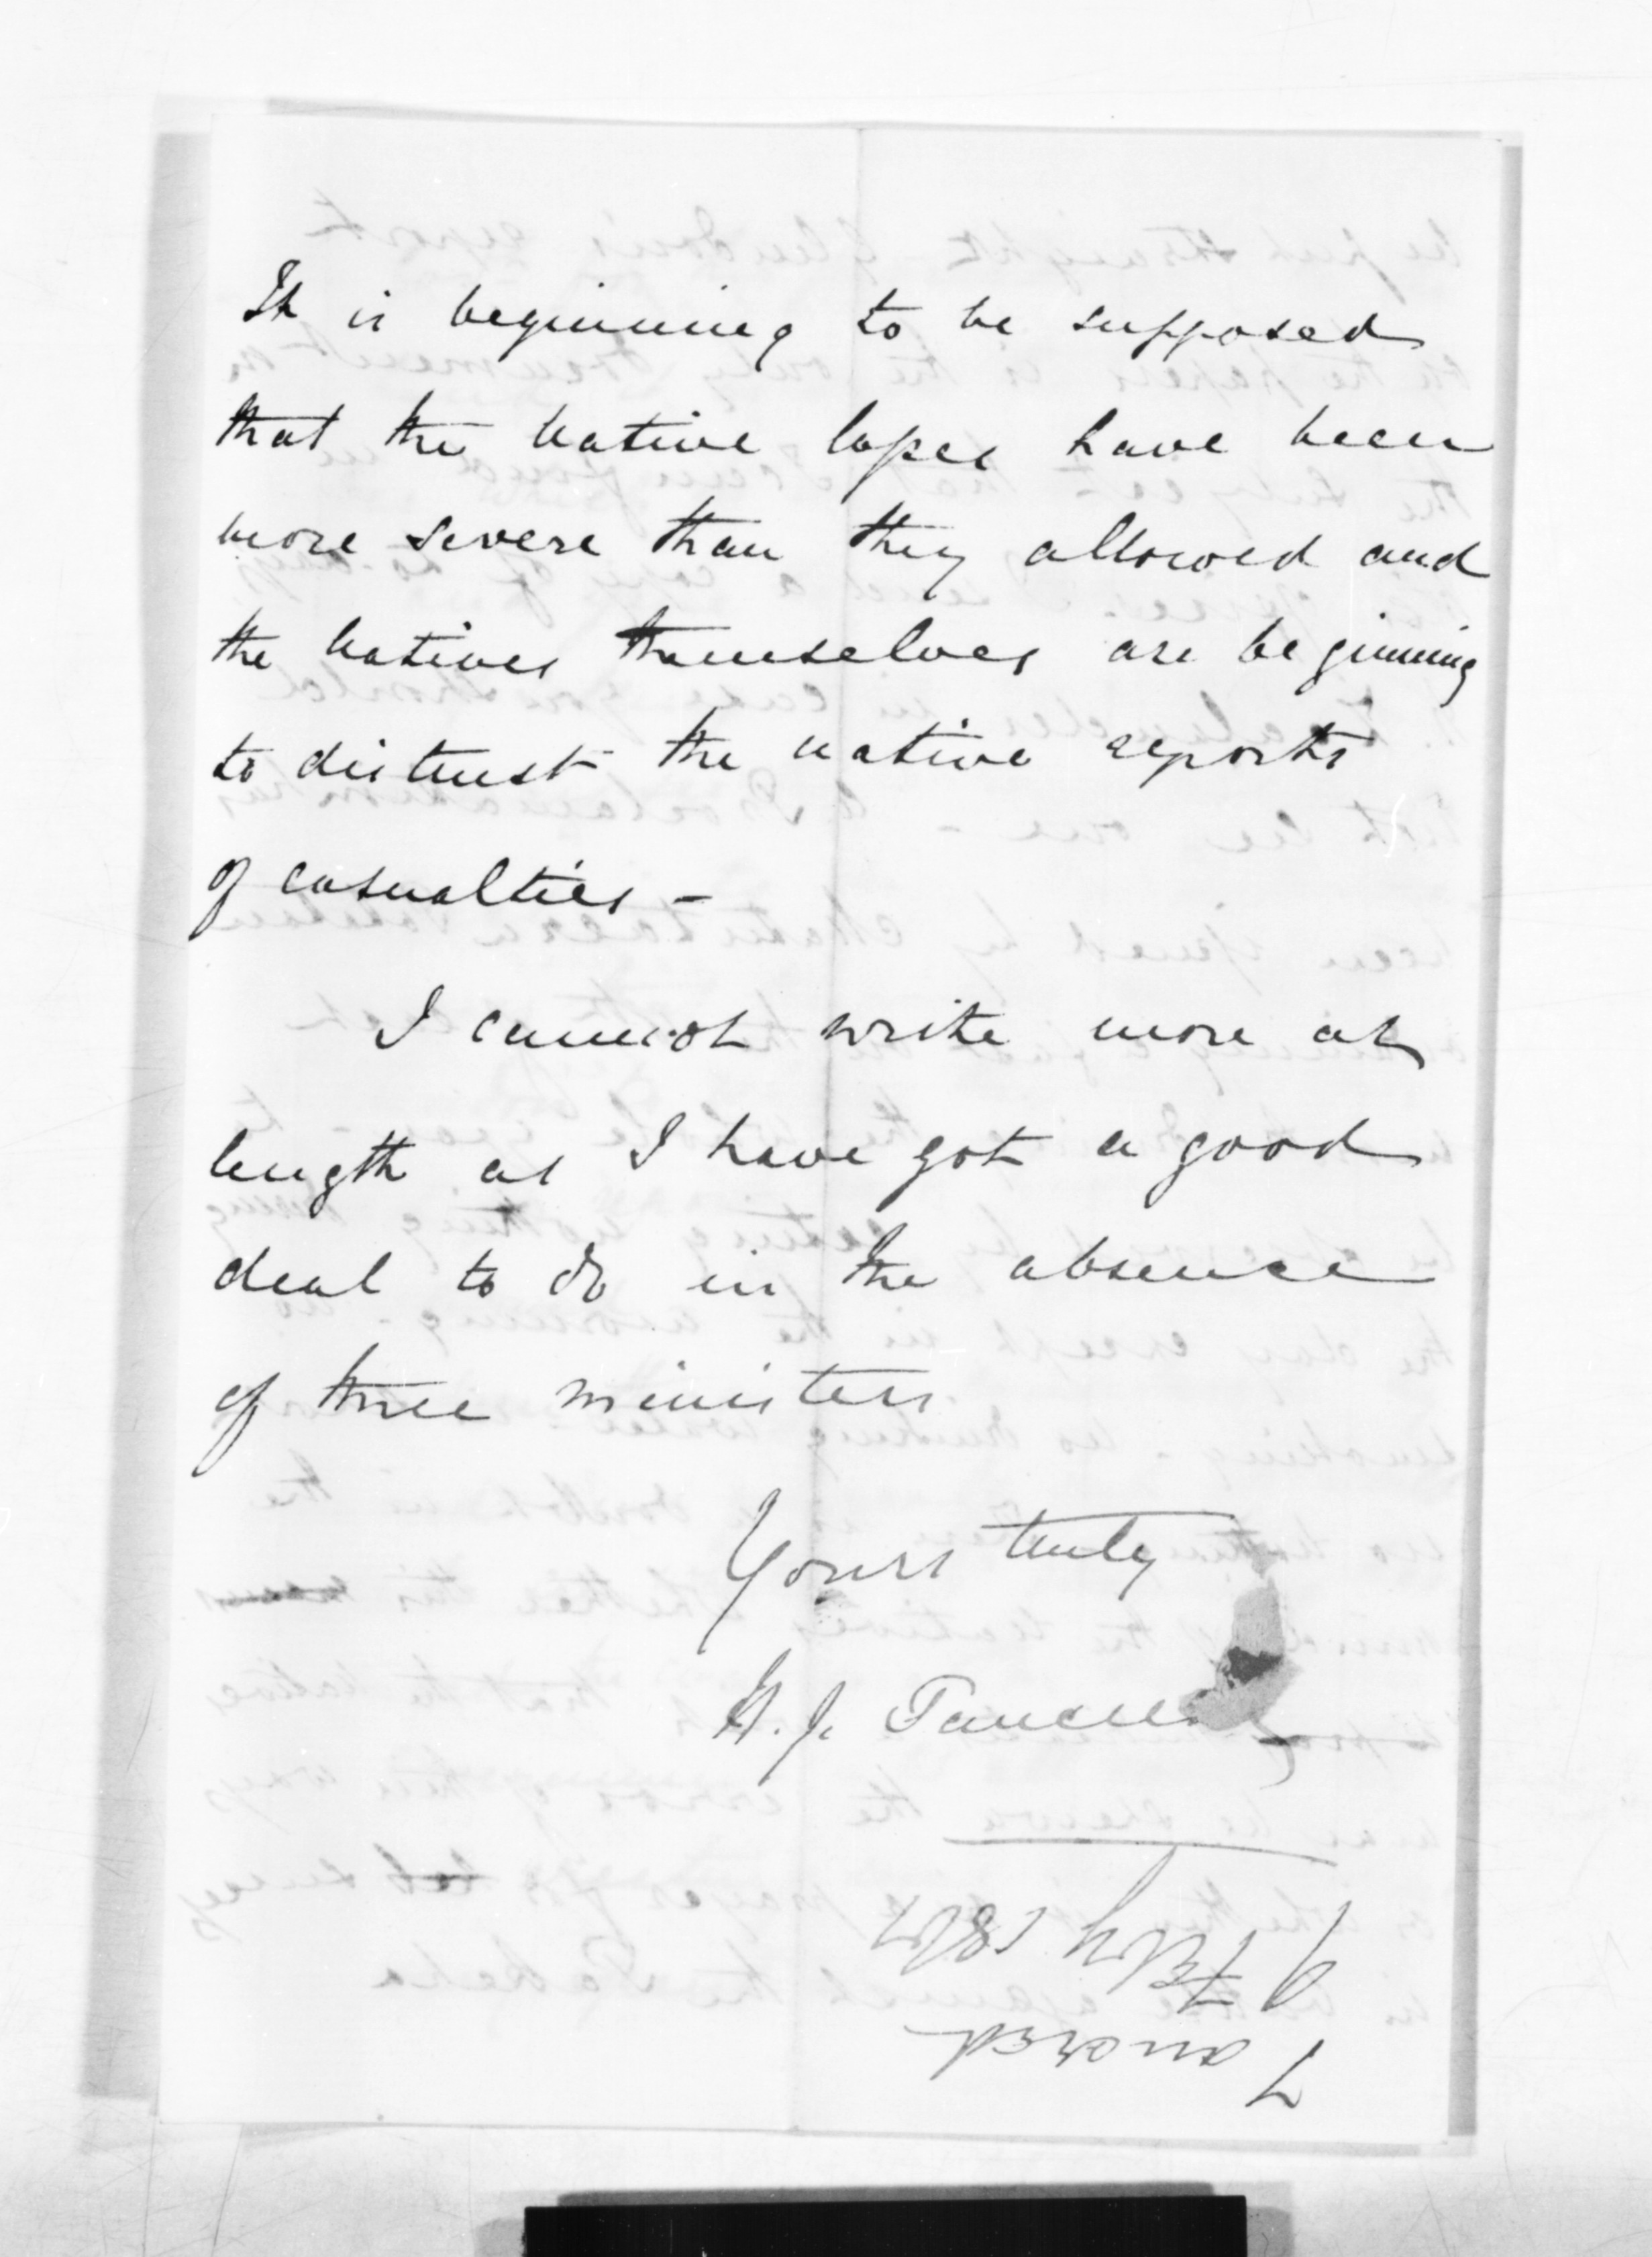 It is beginning to be supposed
that the native loses have been
more severe than they allowed and
the natives themselves are beginning
to distrust the native reports
of casualties -
I cannot write more at
length as I have got a good
deal to do in the absence
of three ministers
Yours truly
H. J. Tancred
Tancred
9 Feby 1861